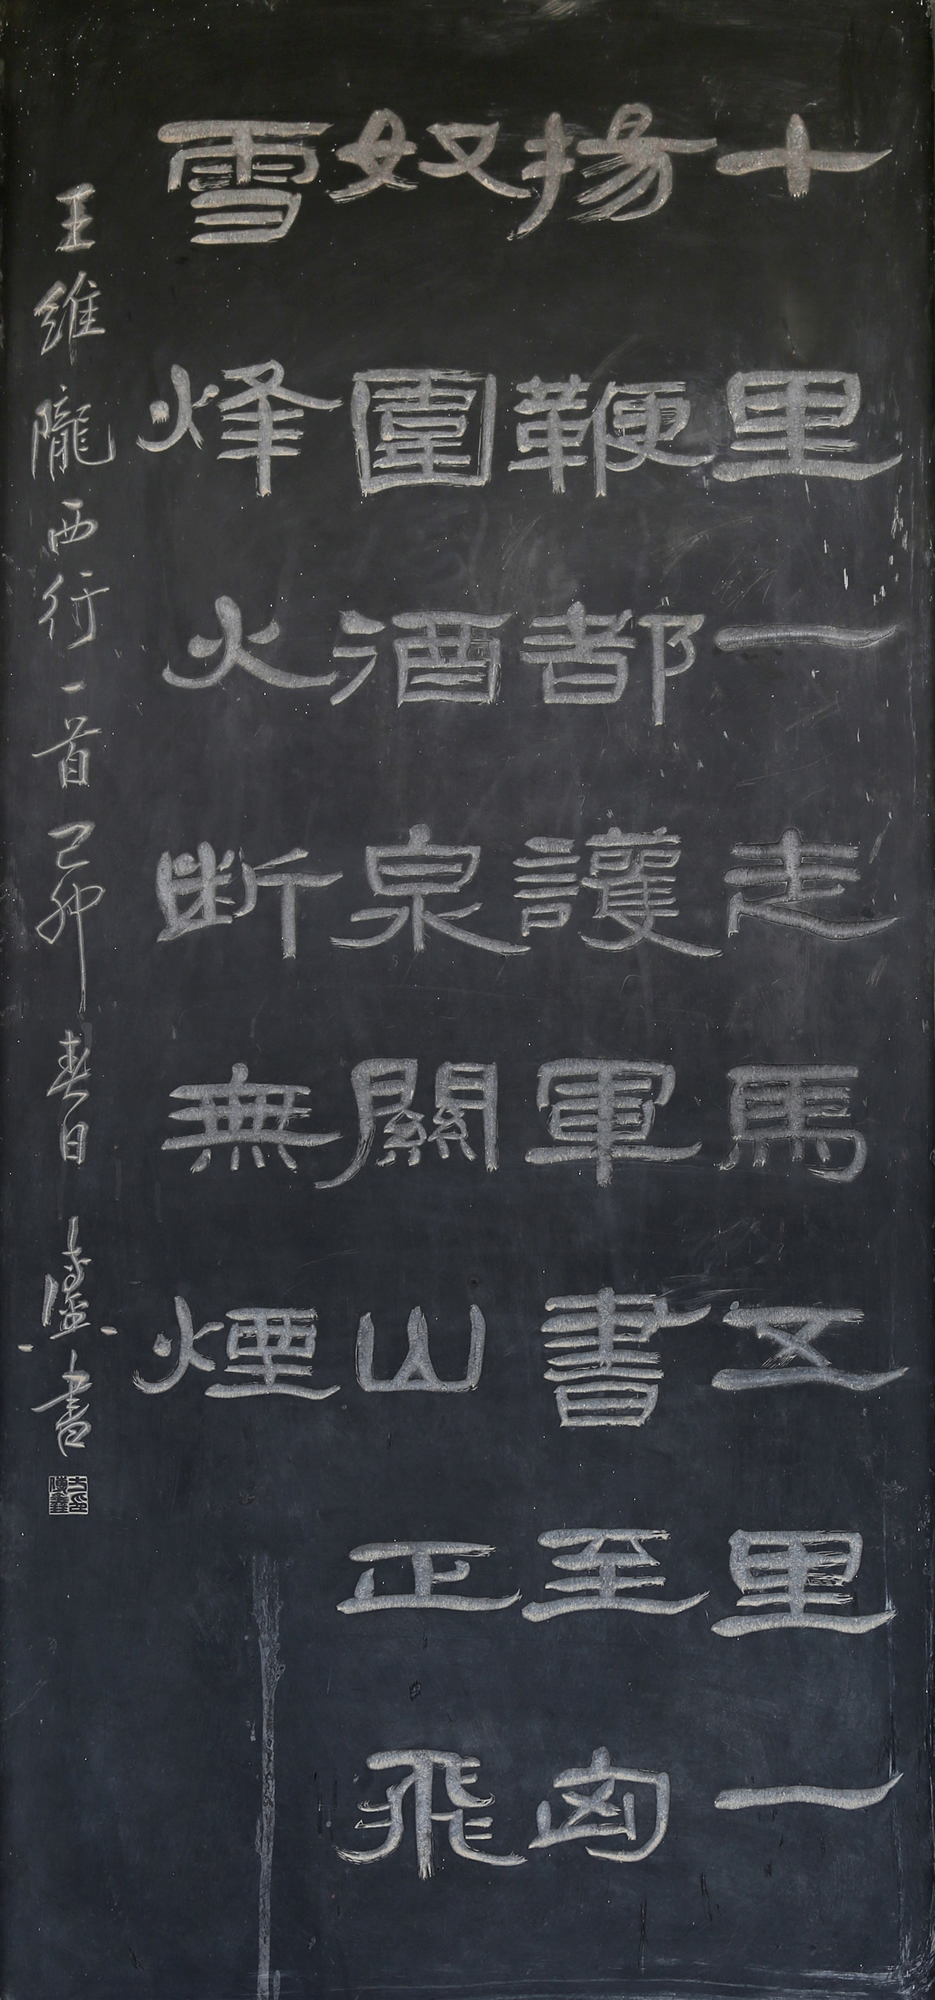 十里一走馬五里一
揚鞭都護軍書至匈
奴圍酒泉關山正飛
雪烽火斷無煙
王維隴西行一首己卯春日
書